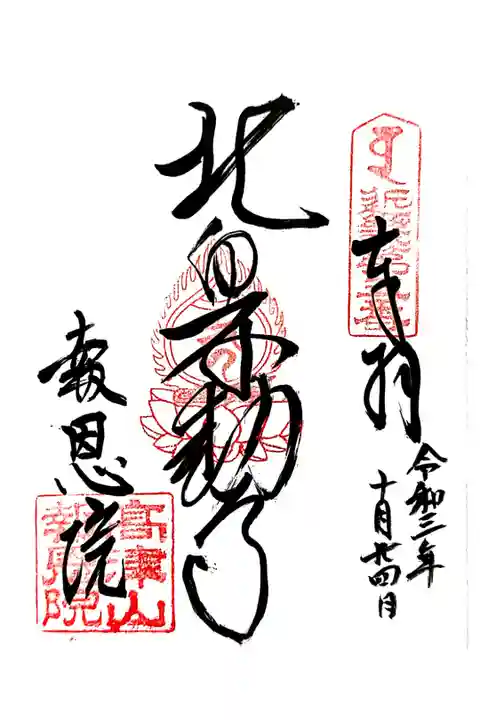 奉拝
令和三年
十月廿四日
北向不動尊
報恩院
高津山
報恩院